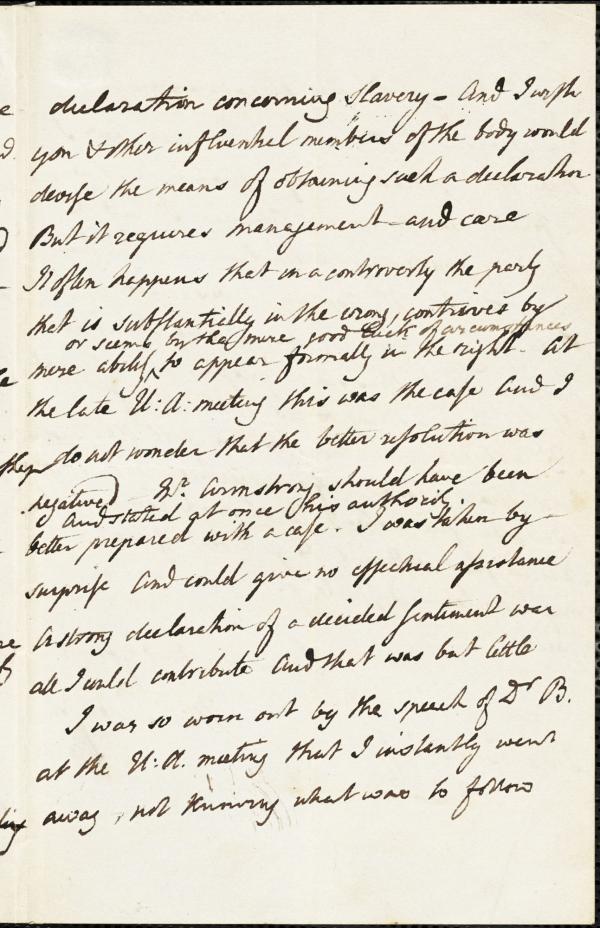 declaration concerning Slavery – And I wish
you & other influential members of the body would
devise the means of obtaining such a declaration
But it requires management – and care
It often happens that in a controversy the party
that is substantially in the wrong, contrives by
or seems by the mere good luck of circumstances
mere ability to appear formally in the right. At
the late U: A: meeting this was the case and I
do not wonder that the better resolution was
negatived – Mr. Armstrong should have been
and stated at once his authority
better prepared with a case. I was taken by
surprise and could give no effectual assistance
A strong declaration of a decided sentiment was
all I could contribute and that was but little
I was so worn out by the speech of Dr B.
at the U: A. meeting that I instantly went
away, not knowing what was to follow